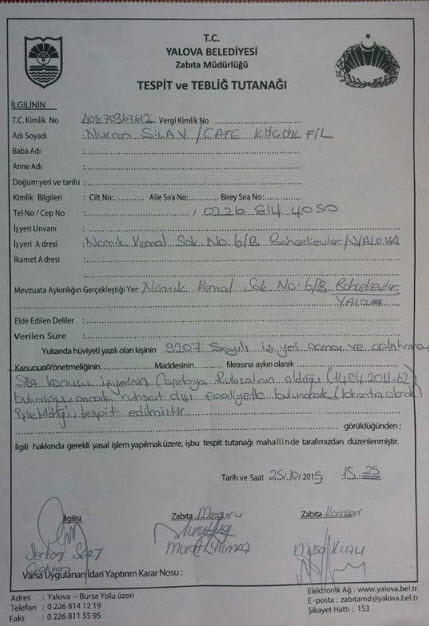 T.C.
YALOVA BELEDİYESİ
Zabıta Müdürlüğü
TESPİT ve TEBLİĞ TUTANAĞI
İLGİLİNİN
T.C. Kimlik No Vergi Kimlik No
Adı Soyadı : Nurhan SİLAV / CAFE KÜÇÜK FİL
Baba Adı :
Anne Adı :
Doğum yeri ve tarihi :
Kimlik Bilgileri : Cilt No: Aile Sıra No: Birey Sıra No:
Tel No / Cep No : / 0226 814 4050
İşyeri Unvanı :
İşyeri Adresi : Namık Kemal Sok No: 6/B Bahçelievler/YALOVA
İkamet Adresi :
Mevzuata Aykırılığın Gerçekleştiği Yer: Namık Kemal Sok No: 6/B Bahçelievler
YALOVA
Elde Edilen Deliler :
Verilen Süre :
Yukarıda hüviyeti yazılı olan kişinin 9207 Sayılı iş yeri açma ve çalıştırma
Kanunu/Yönetmeliğinin Maddesinin fıkrasına aykırı olarak
Söz konusu işyerinin Ruhsatının olduğu (14.04.2011-62)
bulunduğu ancak ruhsat dışı faaliyette bulunarak (lokanta olarak)
işletildiği tespit edilmiştir.
görüldüğünden ;
İlgili hakkında gerekli yasal işlem yapılmak üzere, işbu tespit tutanağı mahallinde tarafımızdan düzenlenmiştir.
Tarih ve Saat 25/10/2015 15.25
İlgilisi Zabıta Memuru Zabıta Komiser
Murat YILMAZ
Varsa Uygulanan İdari Yaptırım Karar Nosu :
Adres : Yalova – Bursa Yolu üzeri
Telefon : 0 226 814 12 19
Faks : 0 226 811 55 95
Elektronik Ağ : www.yalova.bel.tr
E-posta : zabitamd@yalova.bel.tr
Şikayet Hattı : 153